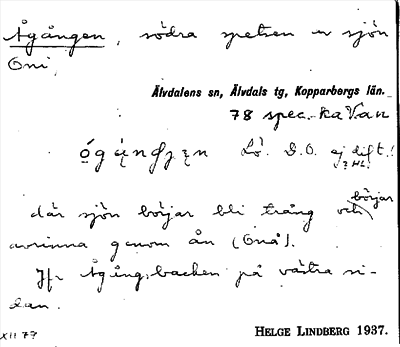 Ågången, södra spetsen av sjön
Oni,
Älvdalens sn, Älvdals tg, Kopparbergs län.
78 spec. ka Van
Lö. D.O. ej dift.!
? HL.
där sjön börjar bli trång och börjar
avrinna genom ån (Onå).
Jfr Ågångsbacken på västra si-
dan.
XII 77
HELGE LINDBERG 1937.